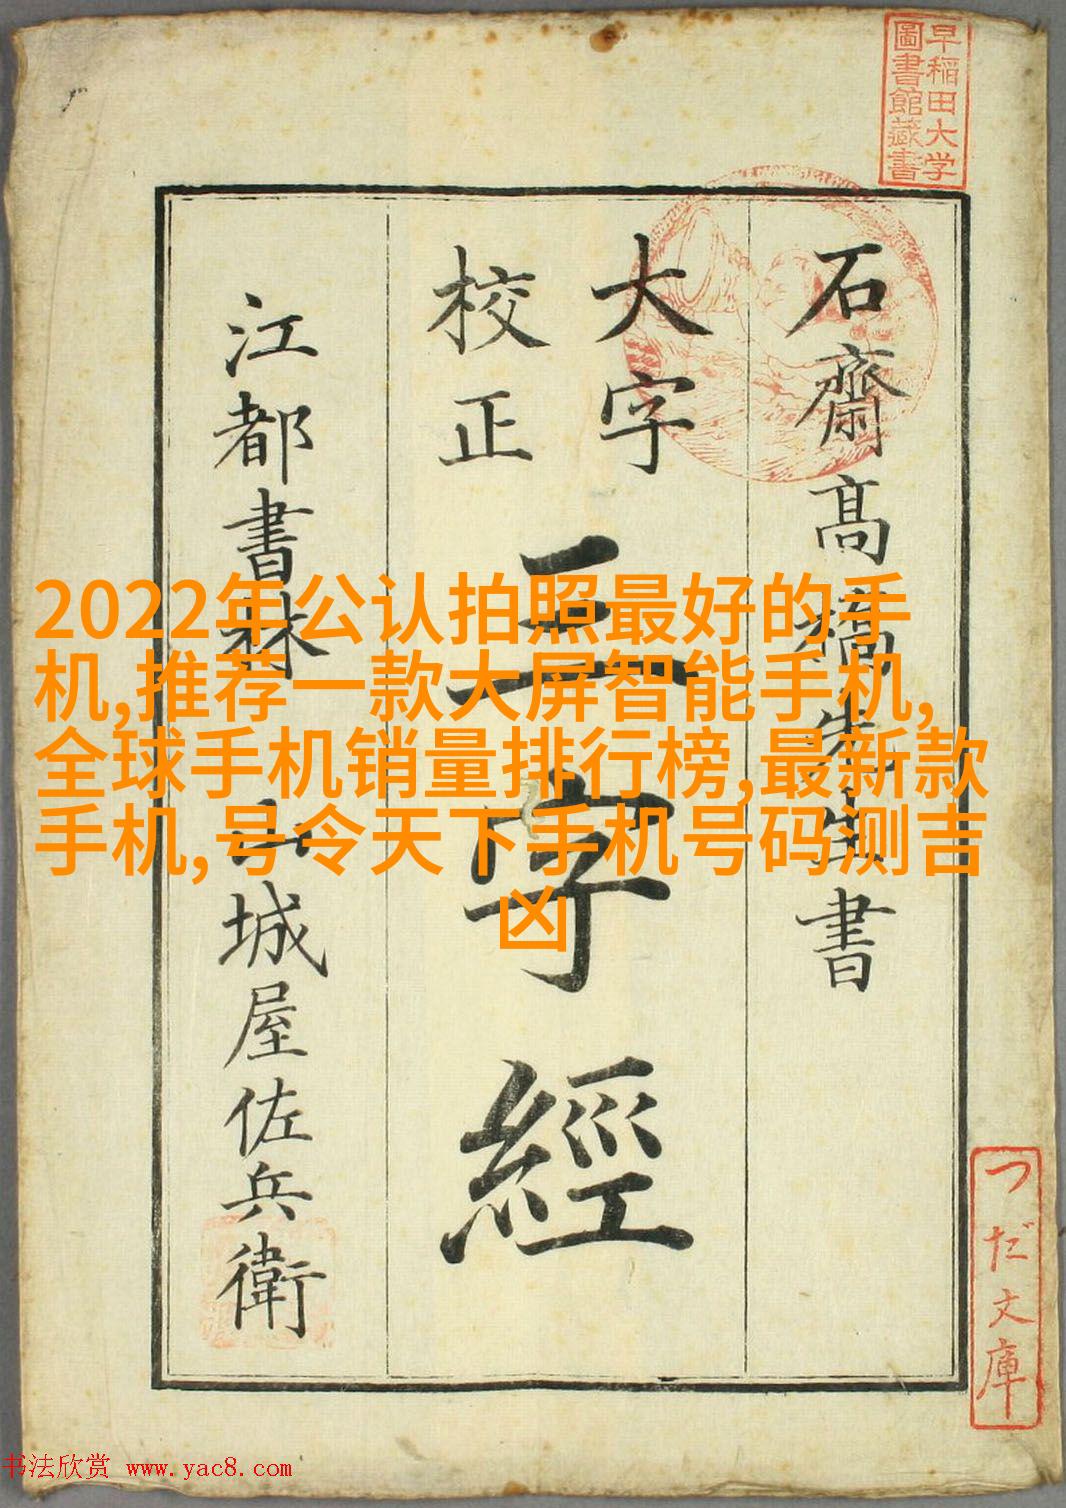 早稲田大学
圖書館藏書
石齋高橋先生書
大字
校正
三字經
江都書林 山城屋佐兵衛
つだ文庫
2022年公认拍照最好的手
机,推荐一款大屏智能手机,
全球手机销量排行榜,最新款
手机,号令天下手机号码测吉
凶
书法欣赏 www.yac8.com